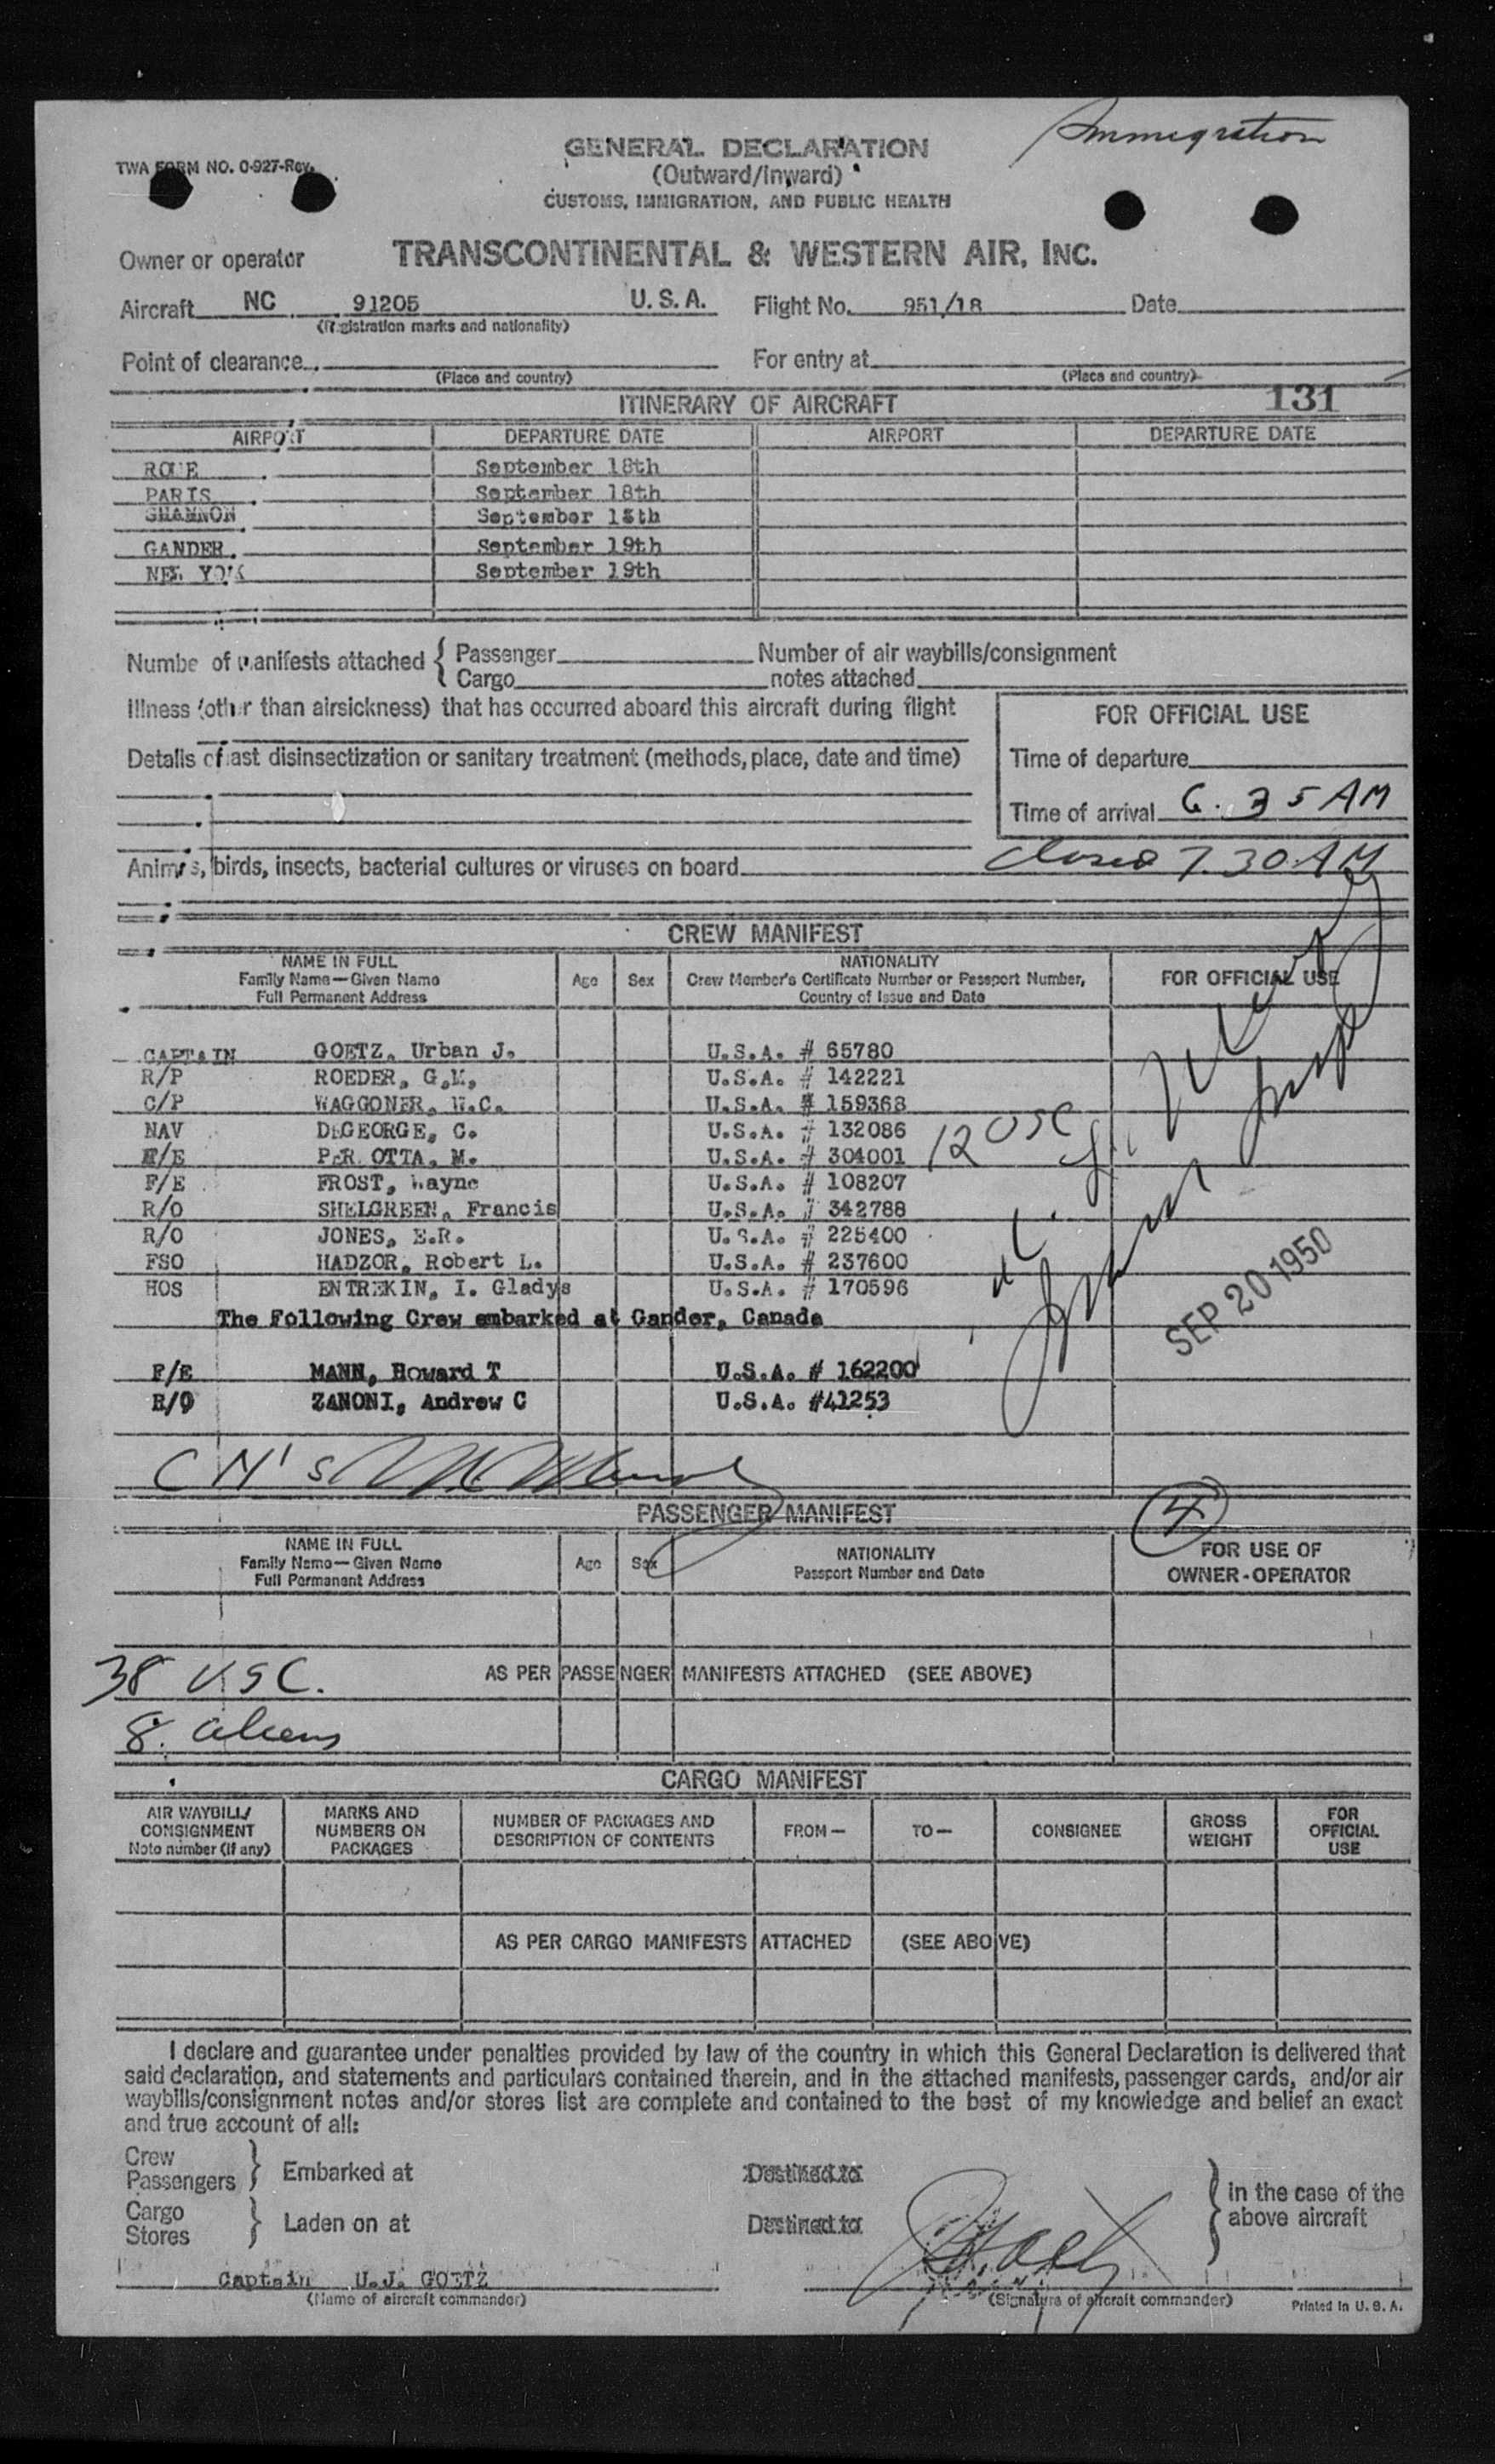 Immigration
TWA FORM NO. 0-927-Rev.
GENERAL DECLARATION
(Outward/Inward)
CUSTOMS, IMMIGRATION, AND PUBLIC HEALTH
Owner or operator TRANSCONTINENTAL & WESTERN AIR, INC.
Aircraft NC 91205 U.S.A. Flight No. 951/18 Date
(Registration marks and nationality)
Point of clearance For entry at
(Place and country) (Place and country)
ITINERARY OF AIRCRAFT 131
AIRPORT DEPARTURE DATE AIRPORT DEPARTURE DATE
ROME September 18th
PARIS September 18th
SHANNON September 18th
GANDER September 19th
NEW YORK September 19th
Number of manifests attached { Passenger Number of air waybills/consignment
Cargo notes attached
Illness (other than airsickness) that has occurred aboard this aircraft during flight
FOR OFFICIAL USE
Details of last disinsectization or sanitary treatment (methods, place, date and time)
Time of departure
Time of arrival 6.35 AM
Animals, birds, insects, bacterial cultures or viruses on board closed 7.30 AM
CREW MANIFEST
NAME IN FULL
Family Name—Given Name
Full Permanent Address
Age Sex
NATIONALITY
Crew Member's Certificate Number or Passport Number,
Country of Issue and Date
FOR OFFICIAL USE
CAPTAIN GOETZ, Urban J. U.S.A. # 65780
R/P ROEDER, G.M. U.S.A. # 142221
C/P WAGGONER, W.C. U.S.A. # 159368
NAV DEGEORGE, C. U.S.A. # 132086
F/E PER OTTA, M. U.S.A. # 304001 12 USC
F/E FROST, Wayne U.S.A. # 108207
R/O SHELGREEN, Francis U.S.A. # 342788
R/O JONES, E.R. U.S.A. # 225400
FSO HADZOR, Robert L. U.S.A. # 237600
HOS ENTREKIN, I. Gladys U.S.A. # 170596
SEP 20 1950
The Following Crew embarked at Gander, Canada
F/E MANN, Howard T U.S.A. # 162200
R/O ZANONI, Andrew C U.S.A. #41253
CM's
PASSENGER MANIFEST 4
NAME IN FULL
Family Name—Given Name
Full Permanent Address
Age Sex
NATIONALITY
Passport Number and Date
FOR USE OF
OWNER-OPERATOR
38 USC. AS PER PASSENGER MANIFESTS ATTACHED (SEE ABOVE)
8. aliens
CARGO MANIFEST
AIR WAYBILL/
CONSIGNMENT
Note number (if any)
MARKS AND
NUMBERS ON
PACKAGES
NUMBER OF PACKAGES AND
DESCRIPTION OF CONTENTS
FROM— TO— CONSIGNEE
GROSS
WEIGHT
FOR
OFFICIAL
USE
AS PER CARGO MANIFESTS ATTACHED (SEE ABOVE)
I declare and guarantee under penalties provided by law of the country in which this General Declaration is delivered that
said declaration, and statements and particulars contained therein, and in the attached manifests, passenger cards, and/or air
waybills/consignment notes and/or stores list are complete and contained to the best of my knowledge and belief an exact
and true account of all:
Crew
Passengers } Embarked at Destined to
Cargo
Stores } Laden on at Destined to
} in the case of the
above aircraft
Captain U.J. GOETZ
(Name of aircraft commander) (Signature of aircraft commander) Printed in U.S.A.